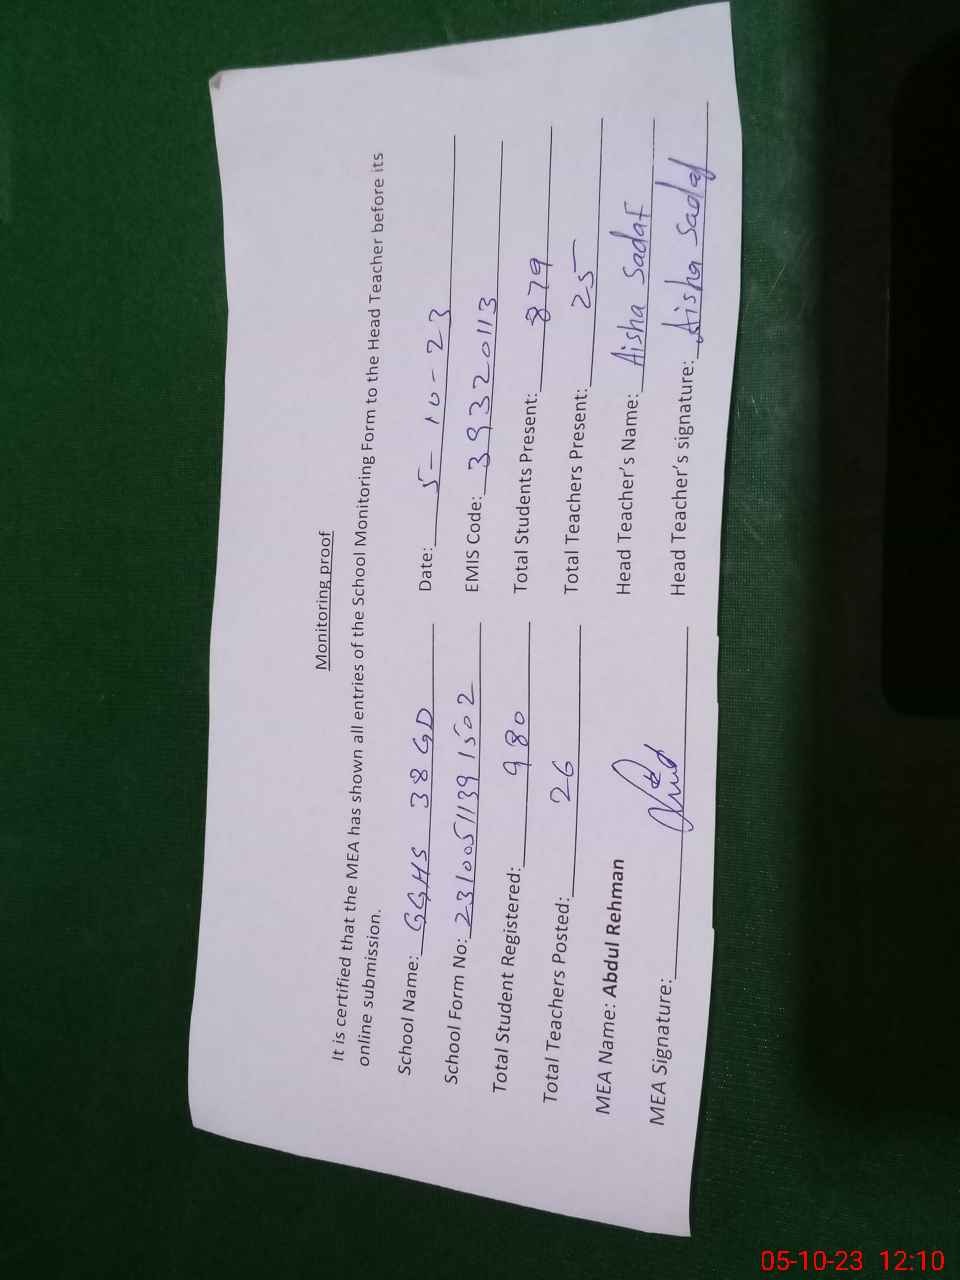 Monitoring proof
It is certified that the MEA has shown all entries of the School Monitoring Form to the Head Teacher before its
online submission.
School Name: GGHS 38 GD Date: 5-10-23
School Form No: 23100511391502 EMIS Code: 39320113
Total Student Registered: 980 Total Students Present: 879
Total Teachers Posted: 26 Total Teachers Present: 25
MEA Name: Abdul Rehman Head Teacher's Name: Aisha Sadaf
MEA Signature: Head Teacher's signature: Aisha Sadaf
05-10-23 12:10